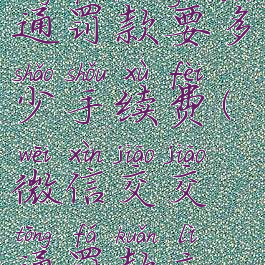 通罚款要多
shǎo shǒu xù fèi
少手续费(
wēi xìn jiāo jiāo
微信交交
tōng fá kuǎn lì
通罚款立